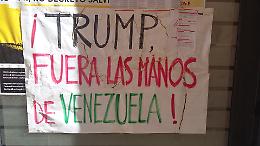 ¡ TRUMP,
FUERA LAS MANOS
DE VENEZUELA !